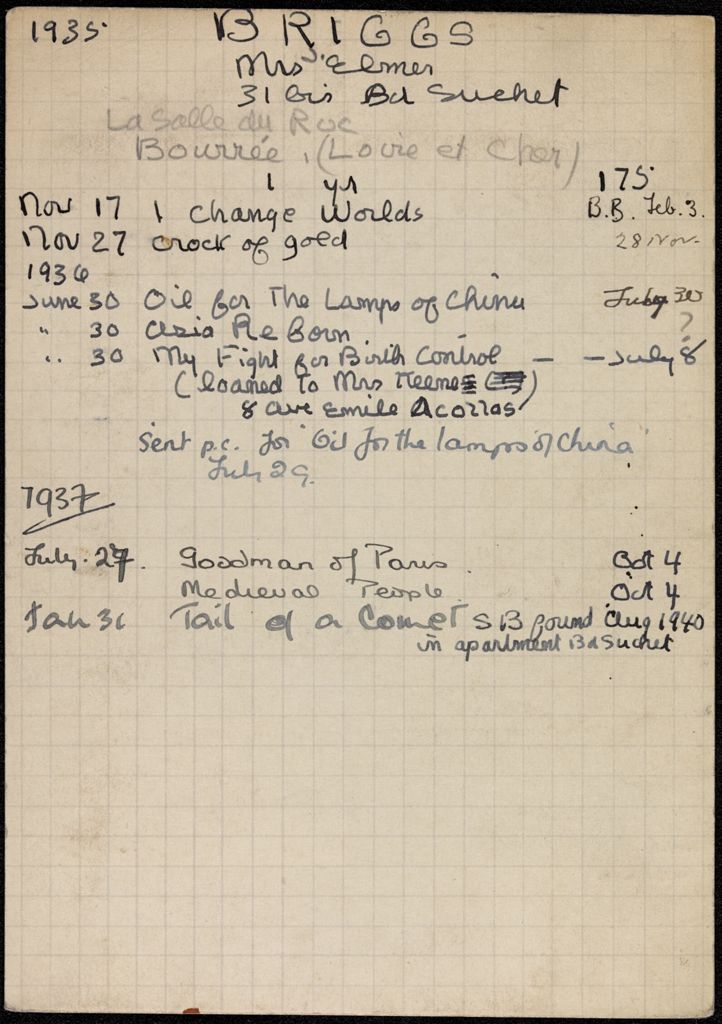 1935 BRIGGS
Mrs Elmer
31 bis Bd Suchet
La Salle du Roc
Bourrée, (Loire et Cher)
1 yr 175
Nov 17 I Change Worlds B.B. Feb. 3.
Nov 27 Crock of gold 28 Nov.
1936
June 30 Oil for The Lamps of China July 30
" 30 Asia Re Born ?
" 30 My Fight for Birth Control — — July 8
(loaned to Mrs Keene)
8 ave Emile Acollas
Sent p.c. for "Oil for the lamps of China"
July 29.
1937
July. 27. Goodman of Paris Oct 4
Medieval People Oct 4
Jan 31 Tail of a Comet SB found Aug 1940
in apartment Bd Suchet